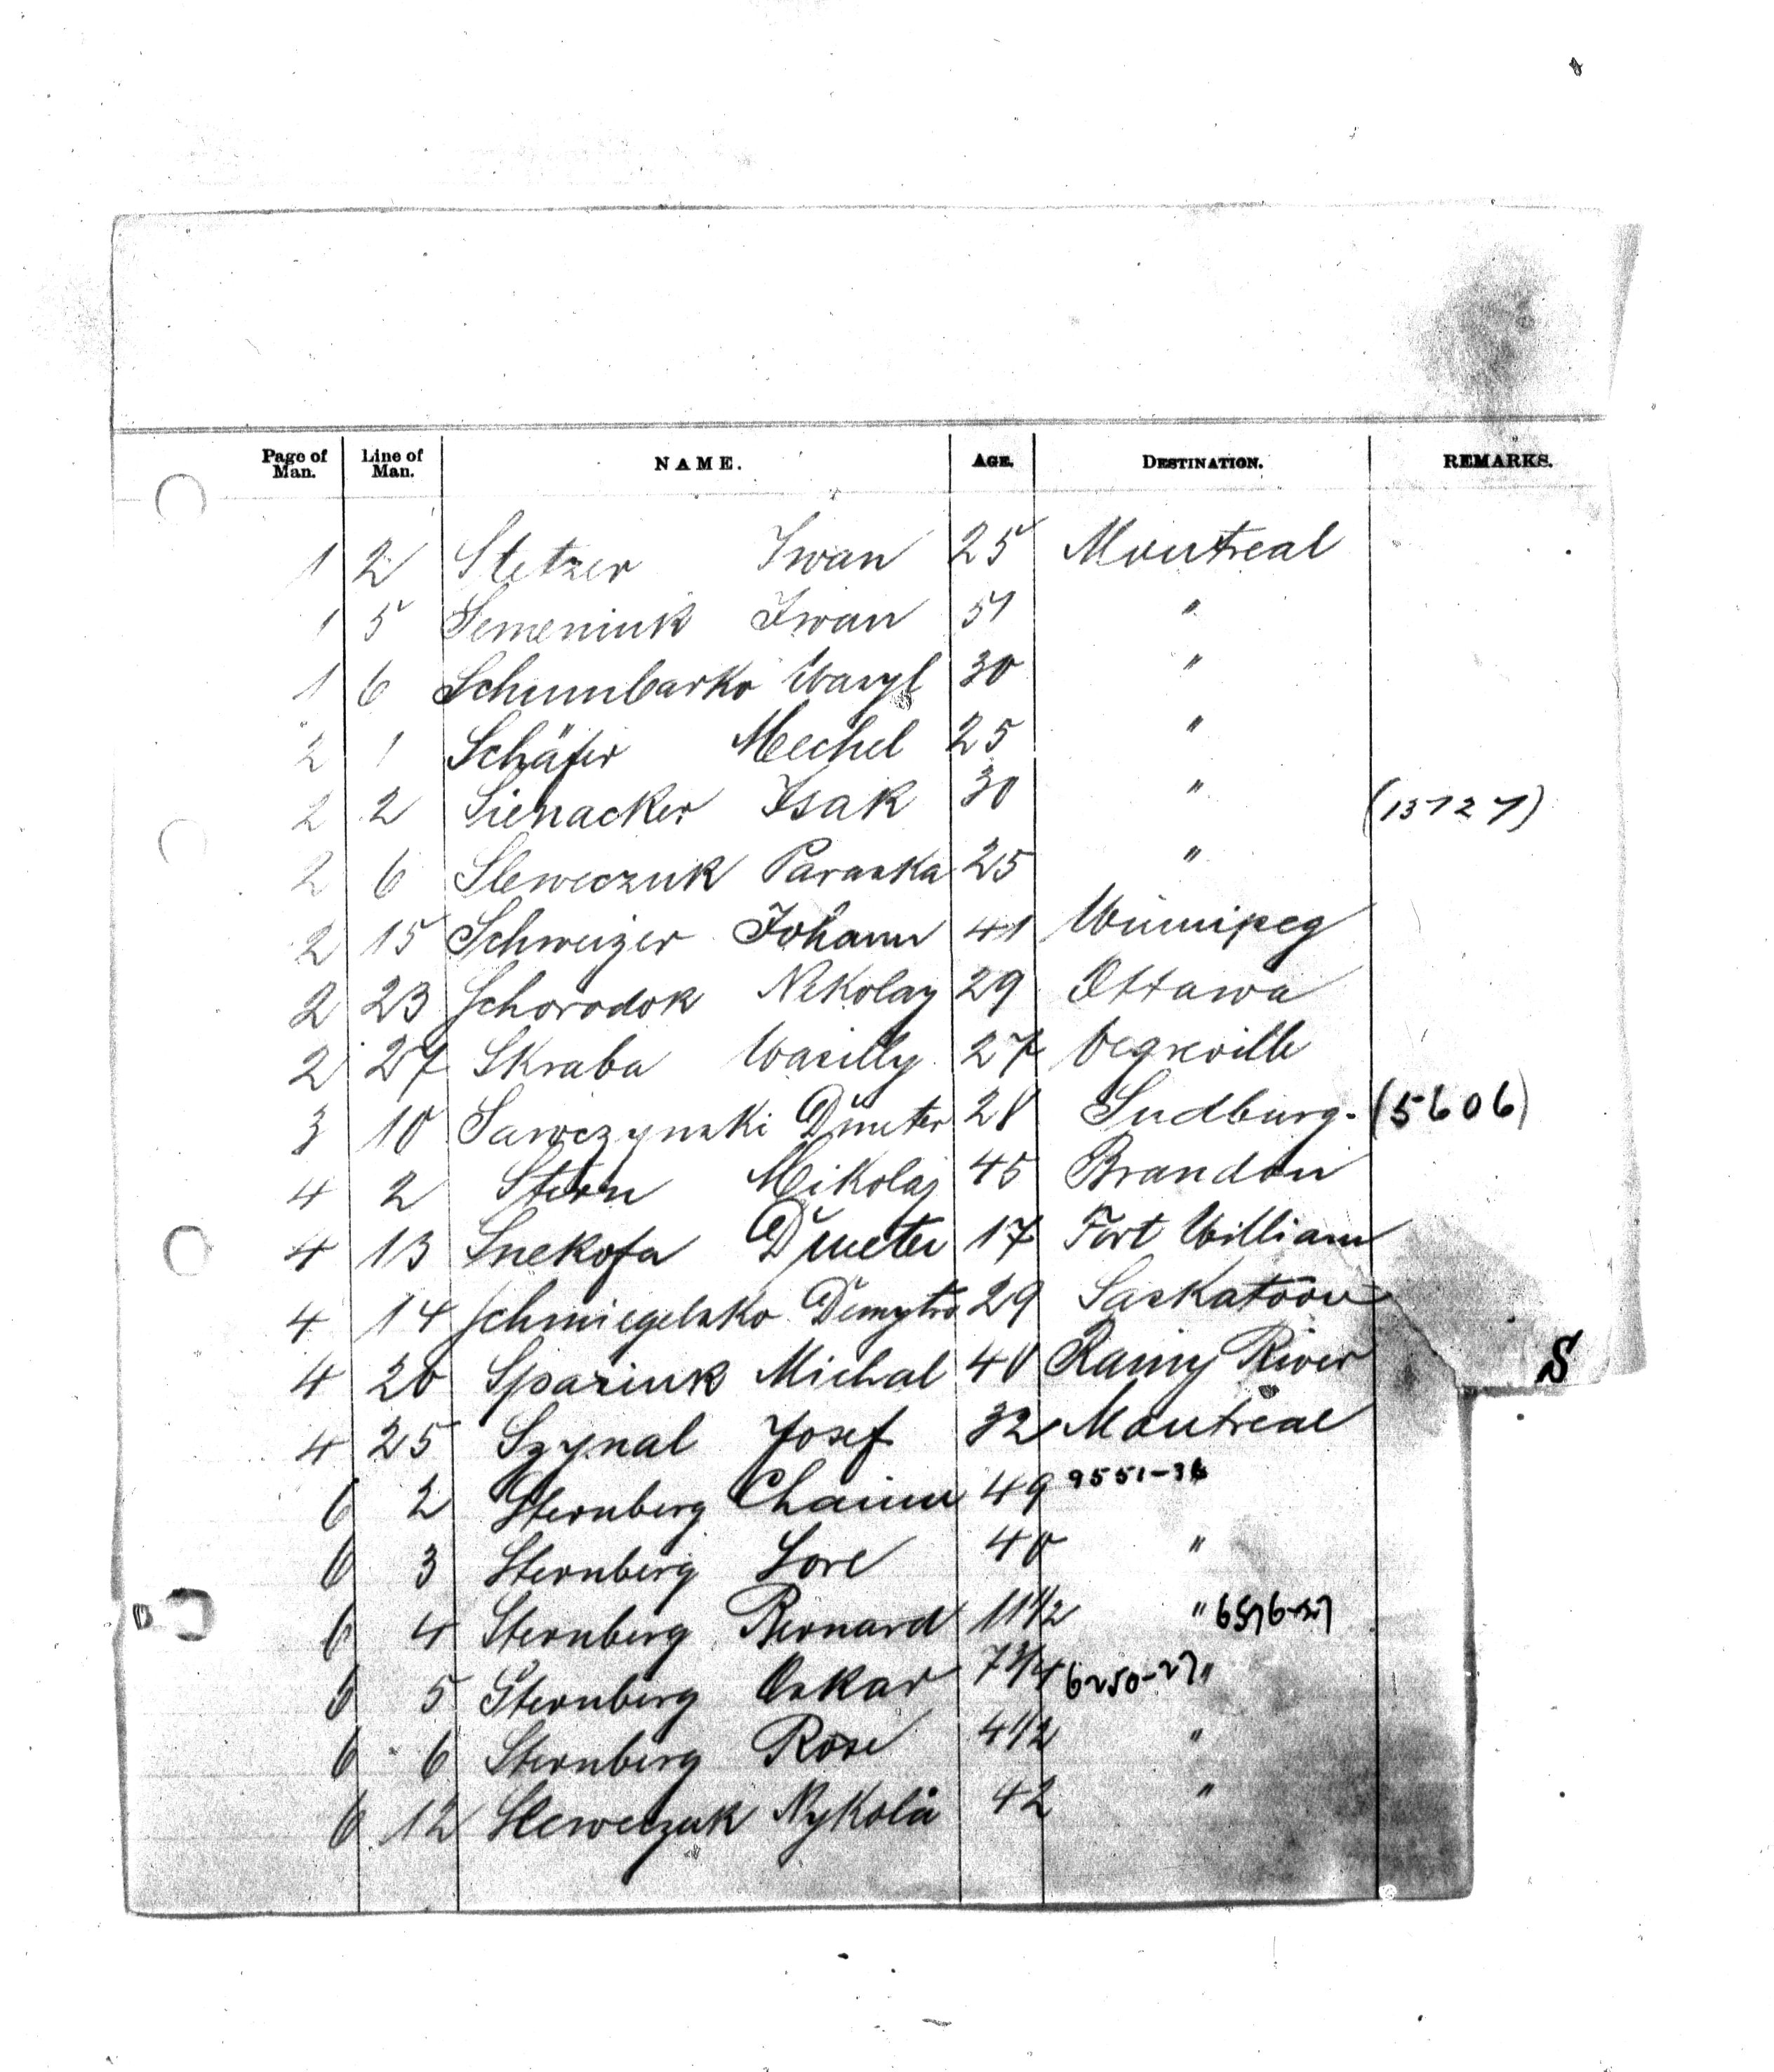 Page of Man. Line of Man. NAME. AGE. DESTINATION. REMARKS.
1 2 Stetzer Iwan 25 Montreal
1 5 Semeniuk Iwan 51 "
1 6 Schumbarko Wasyl 30 "
2 1 Schäfer Mechel 25 "
2 2 Sienacker Isak 30 " (13727)
2 6 Sleweczuk Paraska 25 "
2 15 Schweizer Johann 41 Winnipeg
2 23 Schorodok Nikolay 29 Ottawa
2 27 Skraba Wasilly 27 Vegreville
3 10 Sawczynski Dmeter 28 Sudburg. (5606)
4 2 Stern Mikolaj 45 Brandon
4 13 Snekofa Dmeter 17 Fort William
4 14 Schmiegelsko Demytro 29 Saskatoon
4 20 Spaziuk Michal 40 Rainy River
S
4 25 Szynal Josef 32 Montreal
6 2 Sternberg Chaim 49 9551-36
6 3 Sternberg Lore 40 "
6 4 Sternberg Bernard 11 1/2 "
6 5 Sternberg Oskar 7 3/4 6250-27 "
6 6 Sternberg Rose 4 1/2 "
6 12 Sleweczuk Nykola 42 "